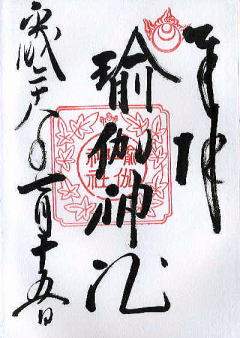 奉拝
瑜伽神社
平成二十八年一月十五日
瑜伽
神社